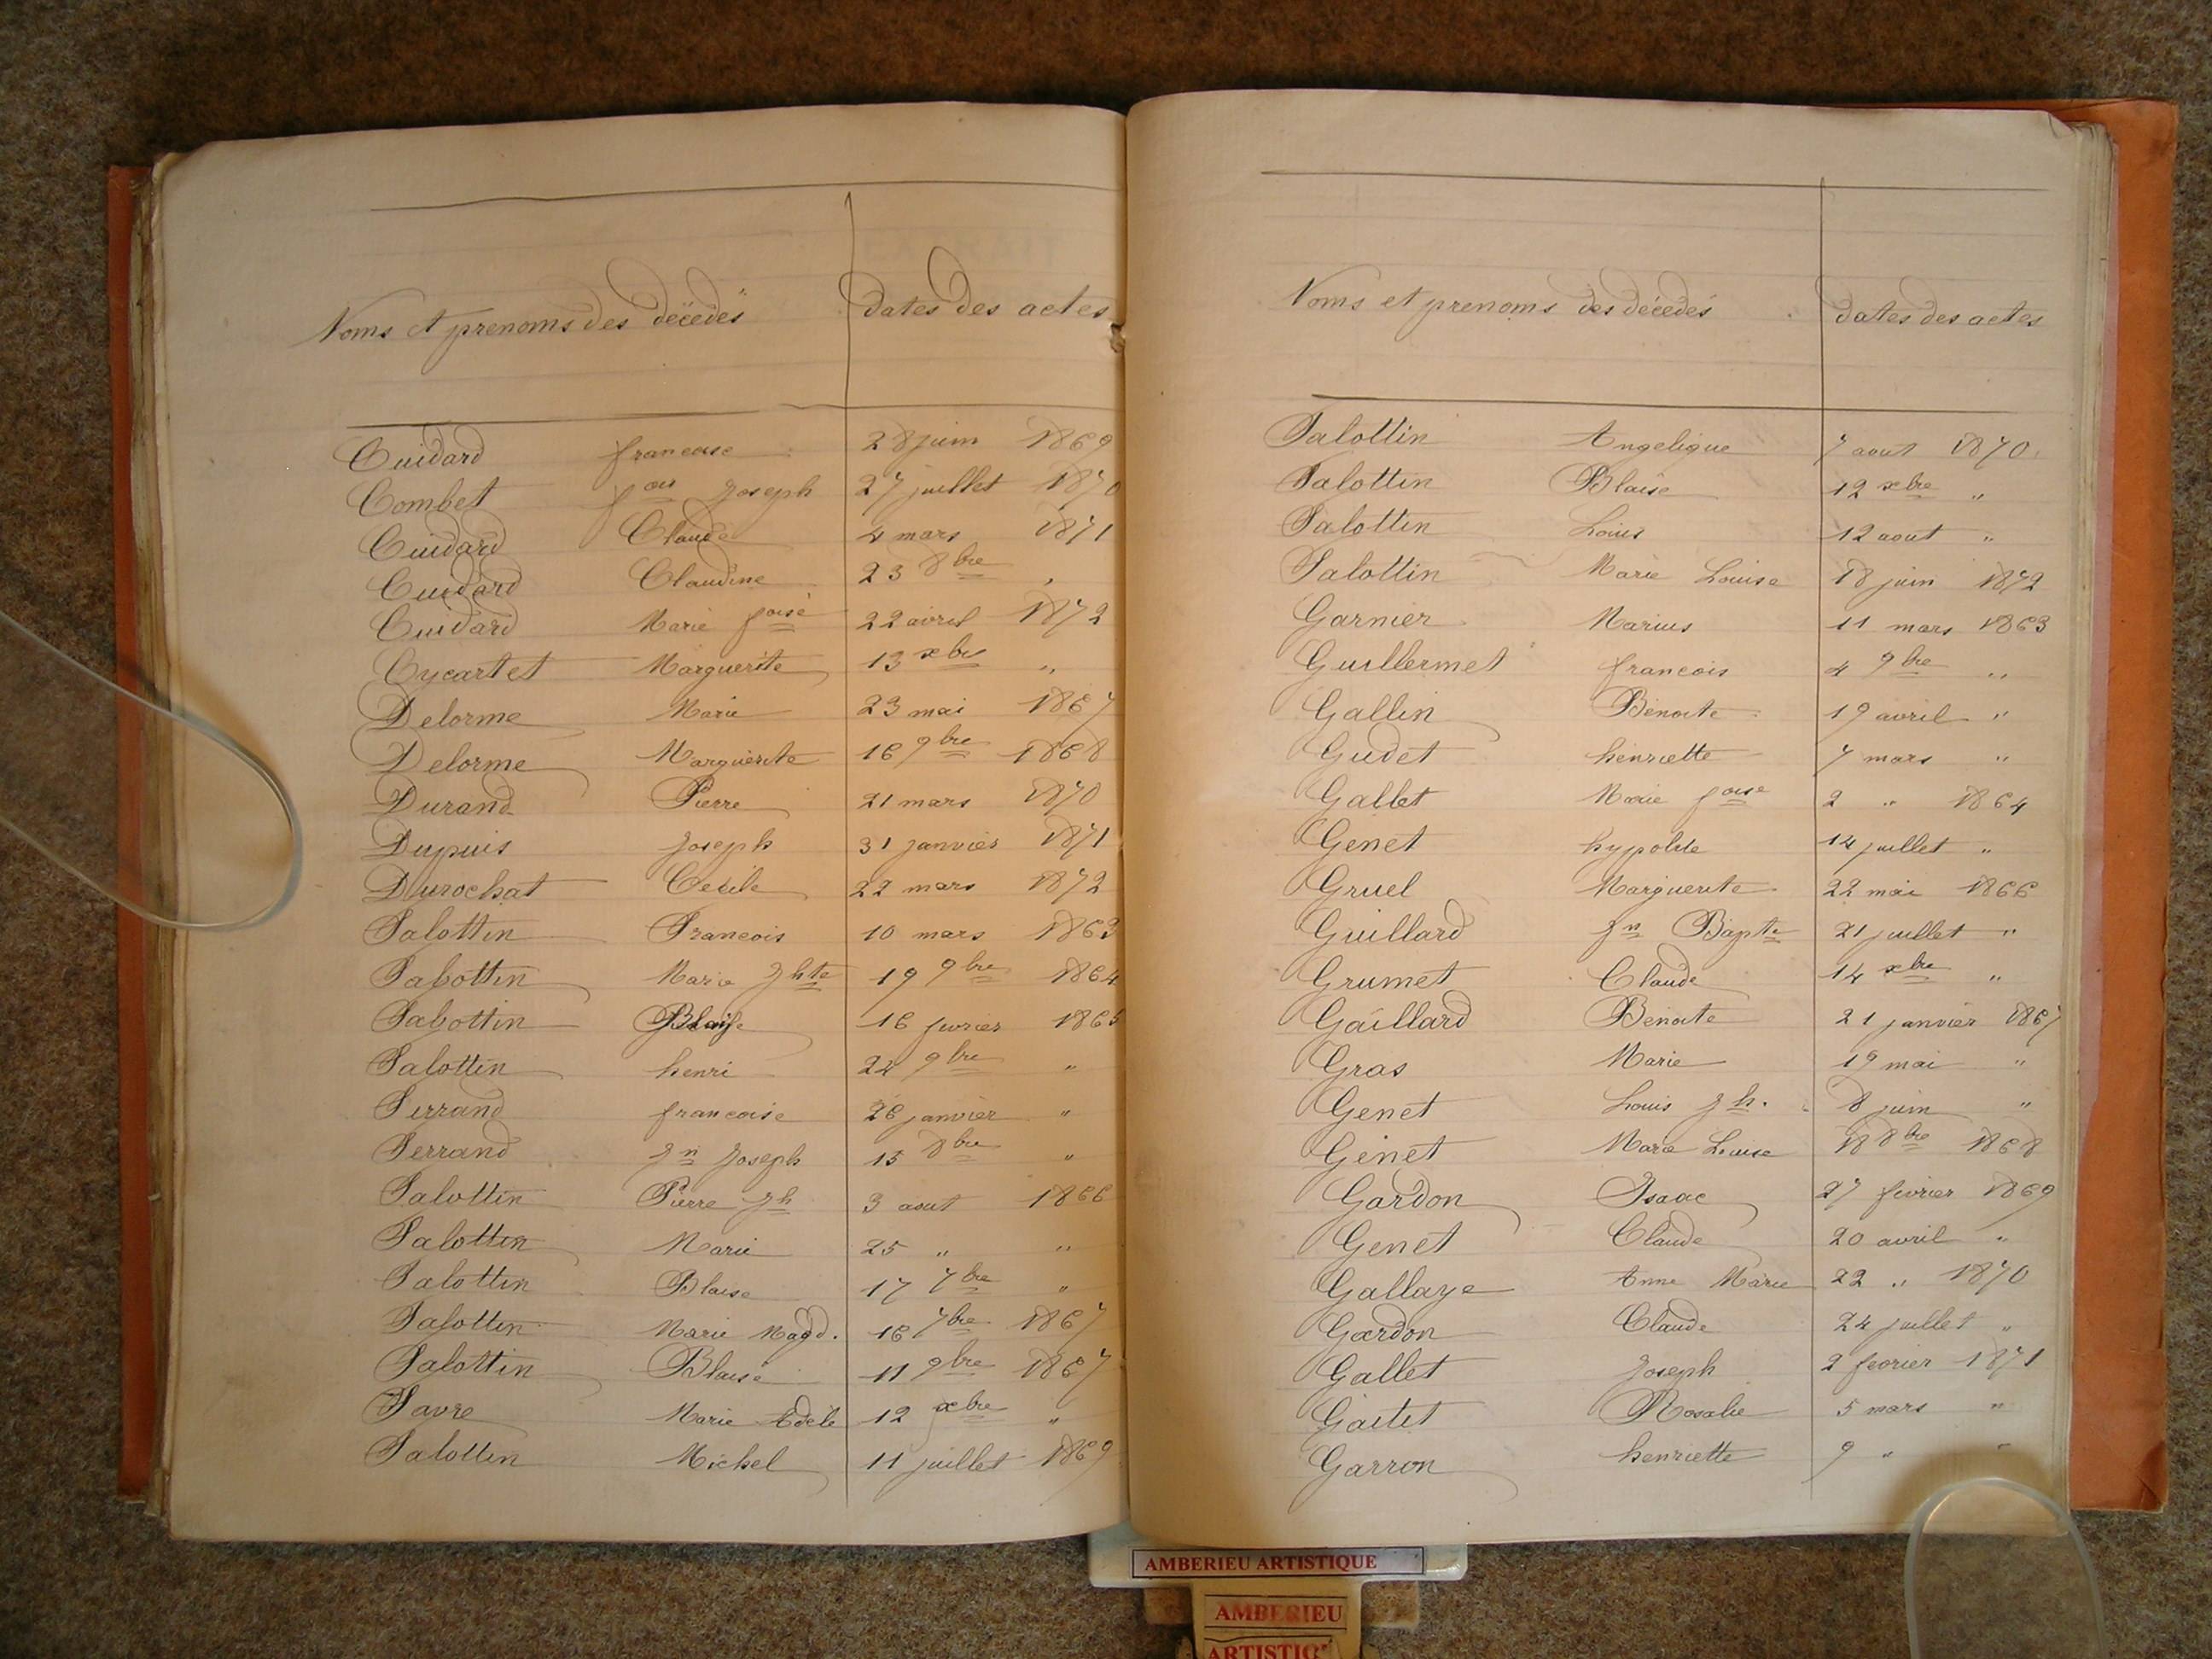 Noms et prenoms des décedés dates des actes
Cuidard francoise 28 juin 1869
Combet fois Joseph 27 juillet 1870
Cuidard Claude 4 mars 1871
Cuidard Claudine 23 8bre "
Cuidard Marie foise 22 avril 1872
Cycartet Marguerite 13 xbre "
Delorme Marie 23 mai 1867
Delorme Marguerite 16 9bre 1868
Durand Pierre 21 mars 1870
Dupuis Joseph 31 janvier 1871
Durochat Cecile 22 mars 1872
Falottin Francois 10 mars 1863
Falottin Marie Jhte 19 9bre 1864
Falottin Blaise 16 fevrier 1865
Falottin henri 24 9bre "
Ferrand francoise 26 janvier "
Ferrand Jn Joseph 15 8bre "
Falottin Pierre Jh 3 aout 1866
Falottin Marie 25 " "
Falottin Blaise 17 7bre "
Falottin Marie Magd. 16 7bre 1867
Falottin Blaise 11 9bre 1867
Favre Marie Adele 12 xbre "
Falottin Michel 11 juillet 1869
Noms et prenoms des décedés dates des actes
Falottin Angelique 7 aout 1870
Falottin Blaise 12 xbre "
Falottin Louis 12 aout "
Falottin Marie Louise 18 juin 1872
Garnier Marius 11 mars 1863
Guillermet francois 4 9bre "
Gallin Benoite 19 avril "
Gudet henriette 7 mars "
Gallet Marie foise 2 " 1864
Genet hypolite 14 juillet "
Gruel Marguerite 22 mai 1866
Guillard Jn Bapte 21 juillet "
Grumet Claude 14 xbre "
Gaillard Benoite 21 janvier 1867
Gras Marie 19 mai "
Genet Louis Jh. 8 juin "
Genet Marie Louise 18 8bre 1868
Gardon Isaac 27 fevrier 1869
Genet Claude 20 avril "
Gallaye Anne Marie 22 " 1870
Gardon Claude 24 juillet "
Gallet Joseph 2 fevrier 1871
Gaitet Rosalie 5 mars "
Garron henriette 9 " "
AMBERIEU ARTISTIQUE
AMBERIEU